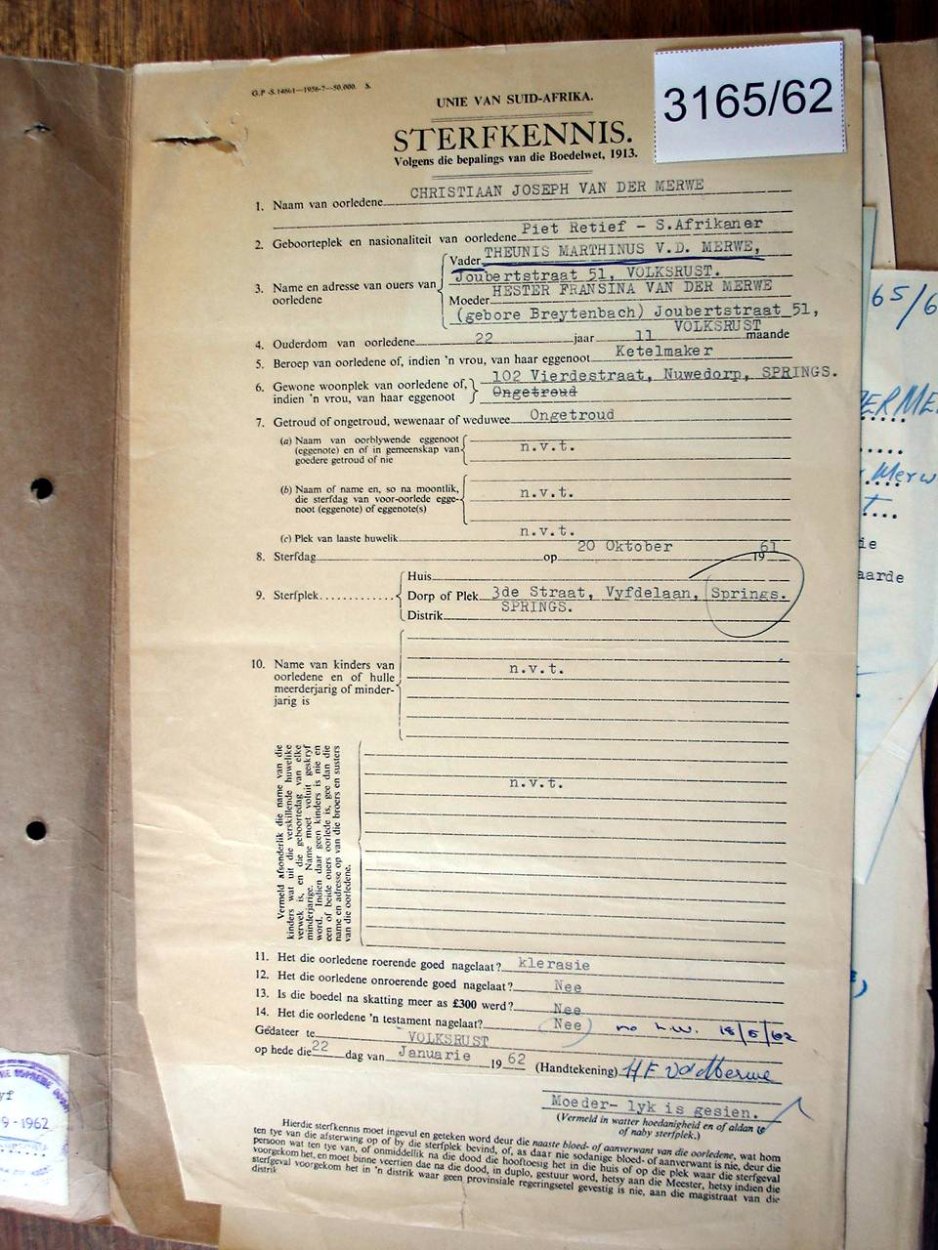 G.P.-S.14861—1956-7—50,000. S.
3165/62
UNIE VAN SUID-AFRIKA.
STERFKENNIS.
Volgens die bepalings van die Boedelwet, 1913.
1. Naam van oorledene CHRISTIAAN JOSEPH VAN DER MERWE
2. Geboorteplek en nasionaliteit van oorledene Piet Retief - S.Afrikaner
3. Name en adresse van ouers van oorledene
Vader THEUNIS MARTHINUS V.D. MERWE,
Joubertstraat 51, VOLKSRUST.
Moeder HESTER FRANSINA VAN DER MERWE
(gebore Breytenbach) Joubertstraat 51,
VOLKSRUST
4. Ouderdom van oorledene 22 jaar 11 maande
5. Beroep van oorledene of, indien 'n vrou, van haar eggenoot Ketelmaker
6. Gewone woonplek van oorledene of, 102 Vierdestraat, Nuwedorp, SPRINGS.
indien 'n vrou, van haar eggenoot Ongetroud
7. Getroud of ongetroud, wewenaar of weduwee Ongetroud
(a) Naam van oorblywende eggenoot
(eggenote) en of in gemeenskap van n.v.t.
goedere getroud of nie
(b) Naam of name en, so na moontlik,
die sterfdag van voor-oorlede egge- n.v.t.
noot (eggenote) of eggenote(s)
(c) Plek van laaste huwelik n.v.t.
8. Sterfdag op 20 Oktober 19 61
9. Sterfplek
Huis
Dorp of Plek 3de Straat, Vyfdelaan, Springs.
Distrik SPRINGS.
10. Name van kinders van
oorledene en of hulle n.v.t.
meerderjarig of minder-
jarig is
Vermeld afsonderlik die name van die
kinders wat uit die verskillende huwelike
verwek is, en die geboortedag van elke
minderjarige. Name moet voluit geskryf
word. Indien daar geen kinders is nie en
een of beide ouers oorlede is, gee dan die
name en adresse op van die broers en susters
van die oorledene.
n.v.t.
11. Het die oorledene roerende goed nagelaat? klerasie
12. Het die oorledene onroerende goed nagelaat? Nee
13. Is die boedel na skatting meer as £300 werd? Nee
14. Het die oorledene 'n testament nagelaat? (Nee) no 18/5/62
Gedateer te VOLKSRUST
op hede die 22 dag van Januarie 19 62 (Handtekening) H F vd Merwe
Moeder- lyk is gesien.
(Vermeld in watter hoedanigheid en of aldan te
of naby sterfplek.)
Hierdie sterfkennis moet ingevul en geteken word deur die naaste bloed- of aanverwant van die oorledene, wat hom
ten tye van die afsterwing op of by die sterfplek bevind, of, as daar nie sodanige bloed- of aanverwant is nie, deur die
persoon wat ten tye van, of onmiddellik na die dood die hooftoesig het in die huis of op die plek waar die sterfgeval
voorgekom het, en moet binne veertien dae na die dood, in duplo, gestuur word, hetsy aan die Meester, hetsy indien die
sterfgeval voorgekom het in 'n distrik waar geen provinsiale regeringsetel gevestig is nie, aan die magistraat van die
distrik
65/6
ER ME
Merw
ie
aarde
9-1962